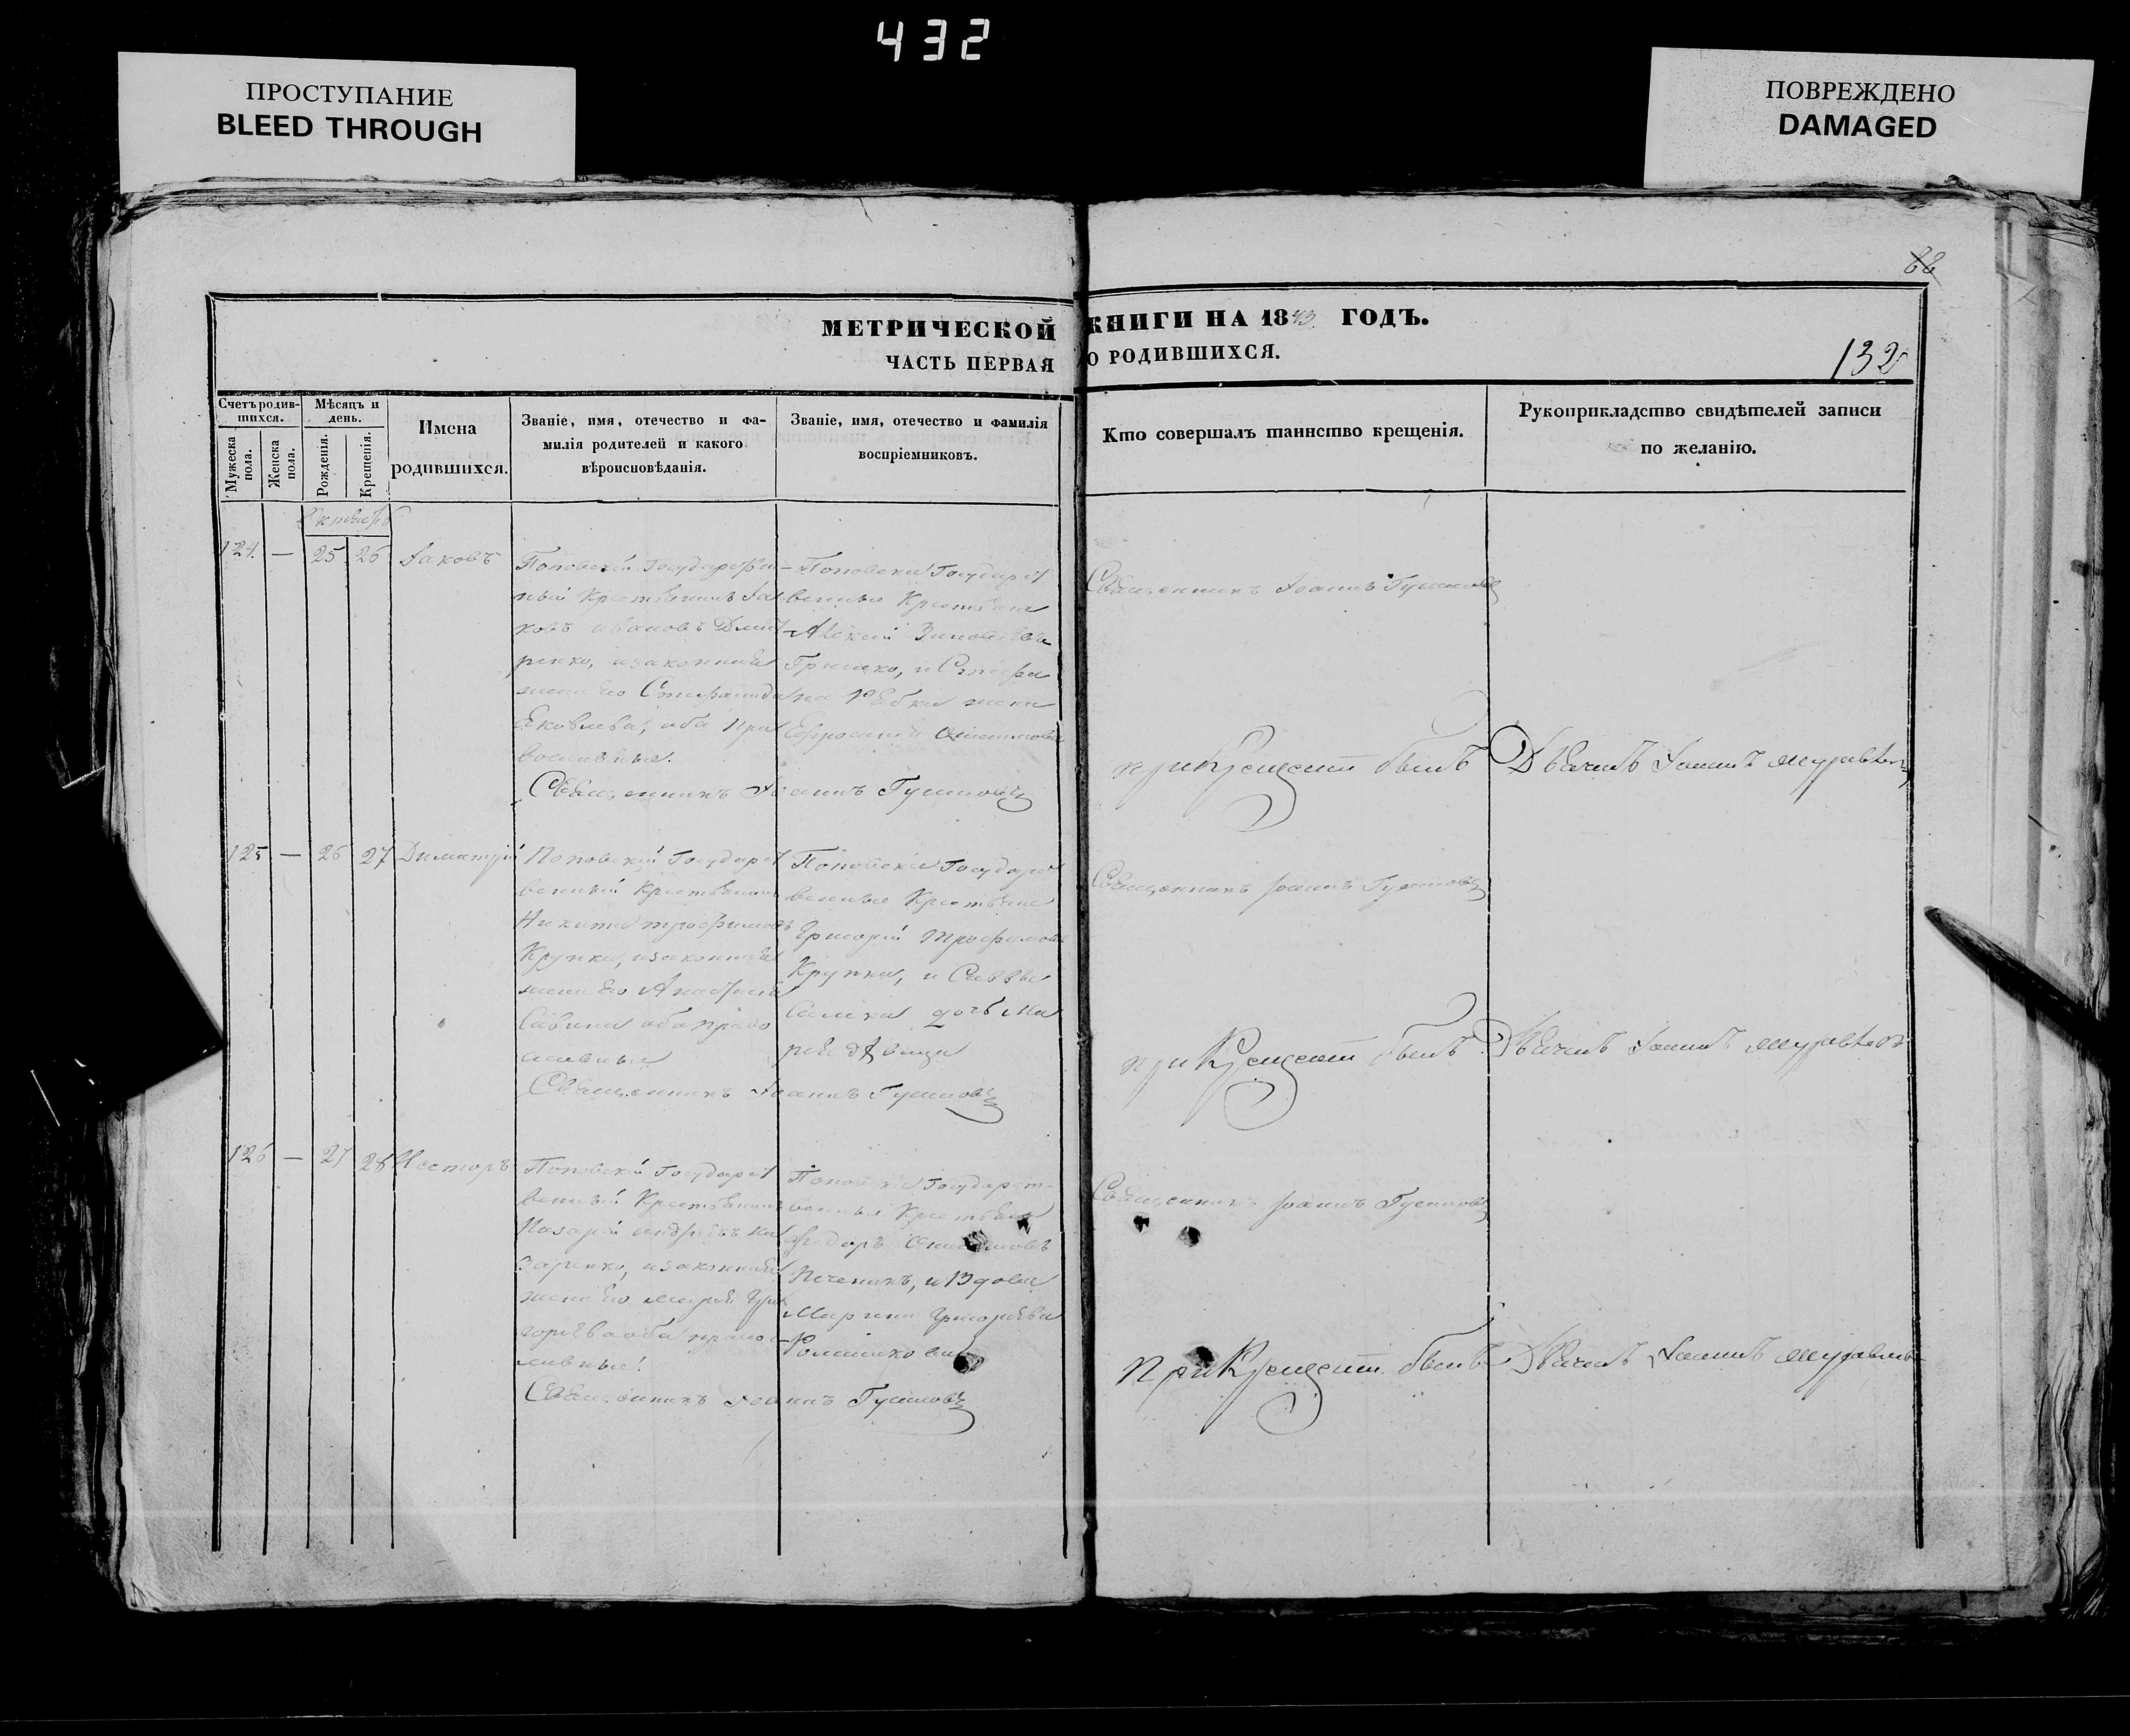 432
ПРОСТУПАНИЕ
BLEED THROUGH
ПОВРЕЖДЕНО
DAMAGED
88
МЕТРИЧЕСКОЙ КНИГИ НА 1843 ГОДЪ.
ЧАСТЬ ПЕРВАЯ О РОДИВШИХСЯ.
132
Счетъ родив-
шихся.
Мужеска
пола.
Женска
пола.
Мѣсяцъ и
день.
Рожденія.
Крещенія.
Имена
родившихся.
Званіе, имя, отечество и фа-
милія родителей и какого
вѣроисповѣданія.
Званіе, имя, отечество и фамилія
воспріемниковъ.
Кто совершалъ таинство крещенія.
Рукоприкладство свидѣтелей записи
по желанію.
Октябрь
124. — 25 26 Іаковъ
Поповскій Государствен-
ный Крестьянинъ Іа
ковъ Ивановъ Дмит
ренко, изаконная
жена его Стефанида
Яковлева, оба Пра
вославные.
Поповскіе Государст
венные Крестьяне
Алексій Зиновіевъ
Гришко, и Стефа
на Рябки жена
Евфросинія Онисимова
Священникъ Іоаннъ Гушковъ
Священникъ Іоаннъ Гушковъ
при Крещеніи былъ Дьячокъ Іоаннъ
125 — 26 27 Димитрій
Поповскій Государст
венный Крестьянинъ
Никита Трофимовъ
Крупка, изаконная
жена его Анастасія
Савина оба право
славные
Поповскіе Государст
венные Крестьяне
Григорій Трофимовъ
Крупка, и Саввы
дочь Ма
рія дѣвица
Священникъ Іоаннъ Гушковъ
Священникъ Іоаннъ Гушковъ
при Крещеніи былъ Дьячокъ Іоаннъ
126 — 27 28 Несторъ
Поповскій Государст
венный Крестьянинъ
Назарій Андреевъ На
заренко, изаконная
жена его Марія Гри
горьева оба право
славные!
Поповскіе Государст-
венные Крестьяне
Феодоръ Онисимовъ
и Вдова
Марина Григорьева
Священникъ Іоаннъ Гушковъ
Священникъ Іоаннъ Гушковъ
при Крещеніи былъ Дьячокъ Іоаннъ